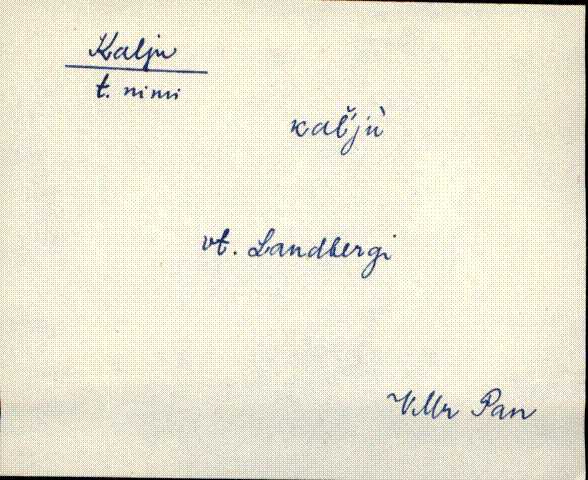 Kalju
t. nimi
kaľjù
vt. Landbergi
VMr Pan